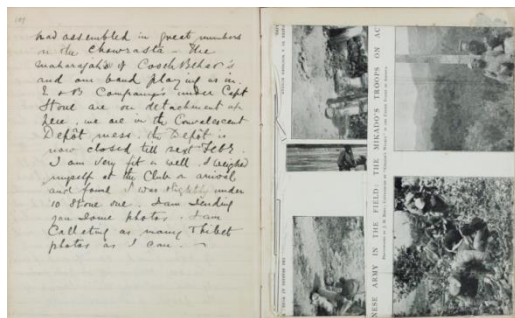 had assembled in great numbers
in the Chowrasta - The
Maharajah of Cooch Behar's
and our band playing us in.
E & B Companys under Capt
Stone are on detachment up
here. we are in the Convalescent
Depôt mess. the Depôt is
now closed till next Feb?.
I am very fit & well. I weighed
myself at the Club on arrival
and found I was slightly under
10 stone one. I am sending
you some photos. I am
Collecting as many Thibet
photos as I can. ~
NESE ARMY IN THE FIELD: THE MIKADO'S TROOPS ON AC